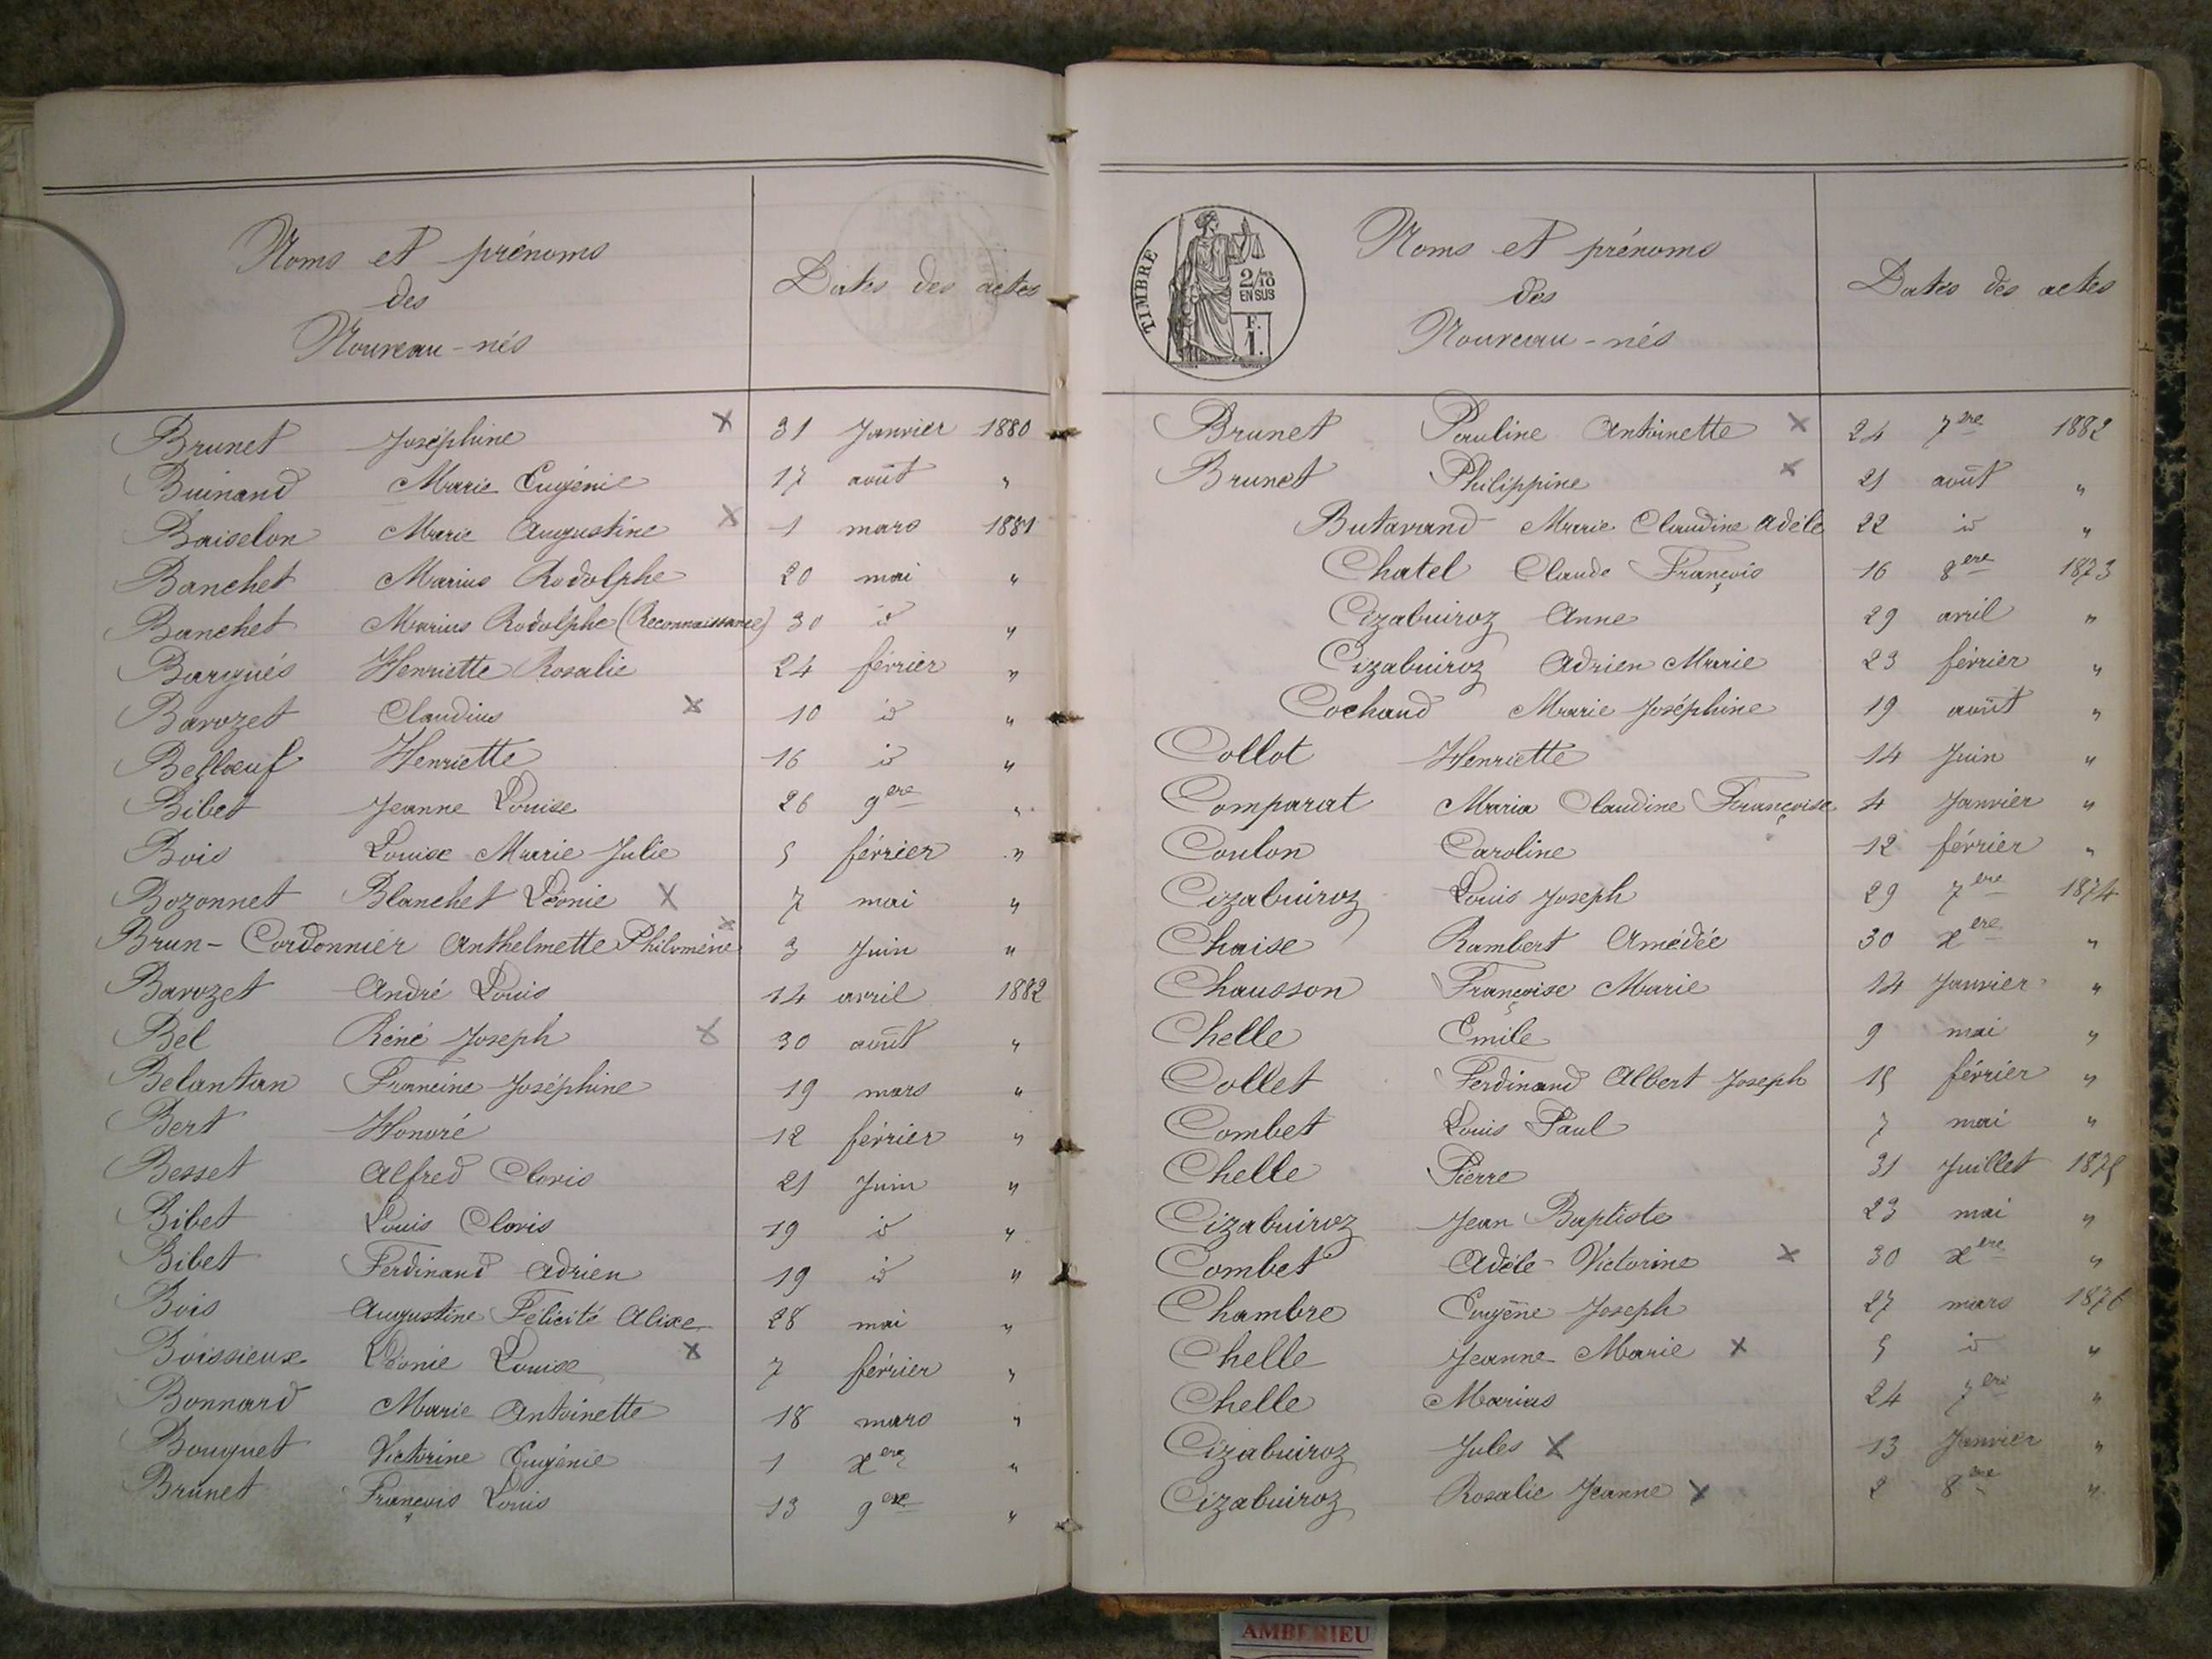 Noms et prénoms
des
Nouveau-nés
Dates des actes
Brunet Joséphine x 31 Janvier 1880
Buinand Marie Eugénie 17 août "
Baiselon Marie Augustine x 1 mars 1881
Banchet Marius Rodolphe 20 mai "
Banchet Marius Rodolphe (Reconnaissance) 30 id "
Bargués Henriette Rosalie 24 février "
Barozet Claudius x 10 id "
Belloeuf Henriette 16 id "
Bibet Jeanne Louise 26 9ere "
Bois Louise Marie Julie 5 février "
Bozonnet Blanchet Léonie x 7 mai "
Brun-Cordonnier Anthelmette Philomène x 3 Juin "
Barozet André Louis 14 avril 1882
Bel Réné Joseph x 30 août "
Belantan Francine Joséphine 19 mars "
Bert Honoré 12 février "
Besset Alfred Clovis 21 Juin "
Bibet Louis Clovis 19 id "
Bibet Ferdinand Adrien 19 id "
Bois Augustine Félicité Alixe 28 mai "
Boissieux Léonie Louise x 7 février "
Bonnard Marie Antoinette 18 mars "
Bouquet Victorine Eugénie 1 xere "
Brunet François Louis 13 9ere "
TIMBRE
2/10
EN SUS
F.
1.
Noms et prénoms
des
Nouveau-nés
Dates des actes
Brunet Pauline Antoinette x 24 7ere 1882
Brunet Philippine x 21 août "
Butavand Marie Claudine Adèle 22 id "
Chatel Claude François 16 8ere 1873
Cizabuiroz Anne 29 avril "
Cizabuiroz Adrien Marie 23 février "
Cochand Marie Joséphine 19 août "
Collot Henriette 14 Juin "
Comparat Maria Claudine Françoise 4 Janvier "
Coulon Caroline 12 février "
Cizabuiroz Louis Joseph 29 7ere 1874
Chaise Rambert Amédée 30 xere "
Chausson Françoise Marie 14 Janvier "
Chelle Emile 9 mai "
Collet Ferdinand Albert Joseph 15 février "
Combet Louis Paul 7 mai "
Chelle Pierre 31 Juillet 1875
Cizabuiroz Jean Baptiste 23 mai "
Combet Adèle Victorine x 30 xere "
Chambre Eugène Joseph 27 mars 1876
Chelle Jeanne Marie x 5 id "
Chelle Marius 24 7ere "
Cizabuiroz Jules x 13 Janvier "
Cizabuiroz Rosalie Jeanne x 2 8ere "
AMBERIEU